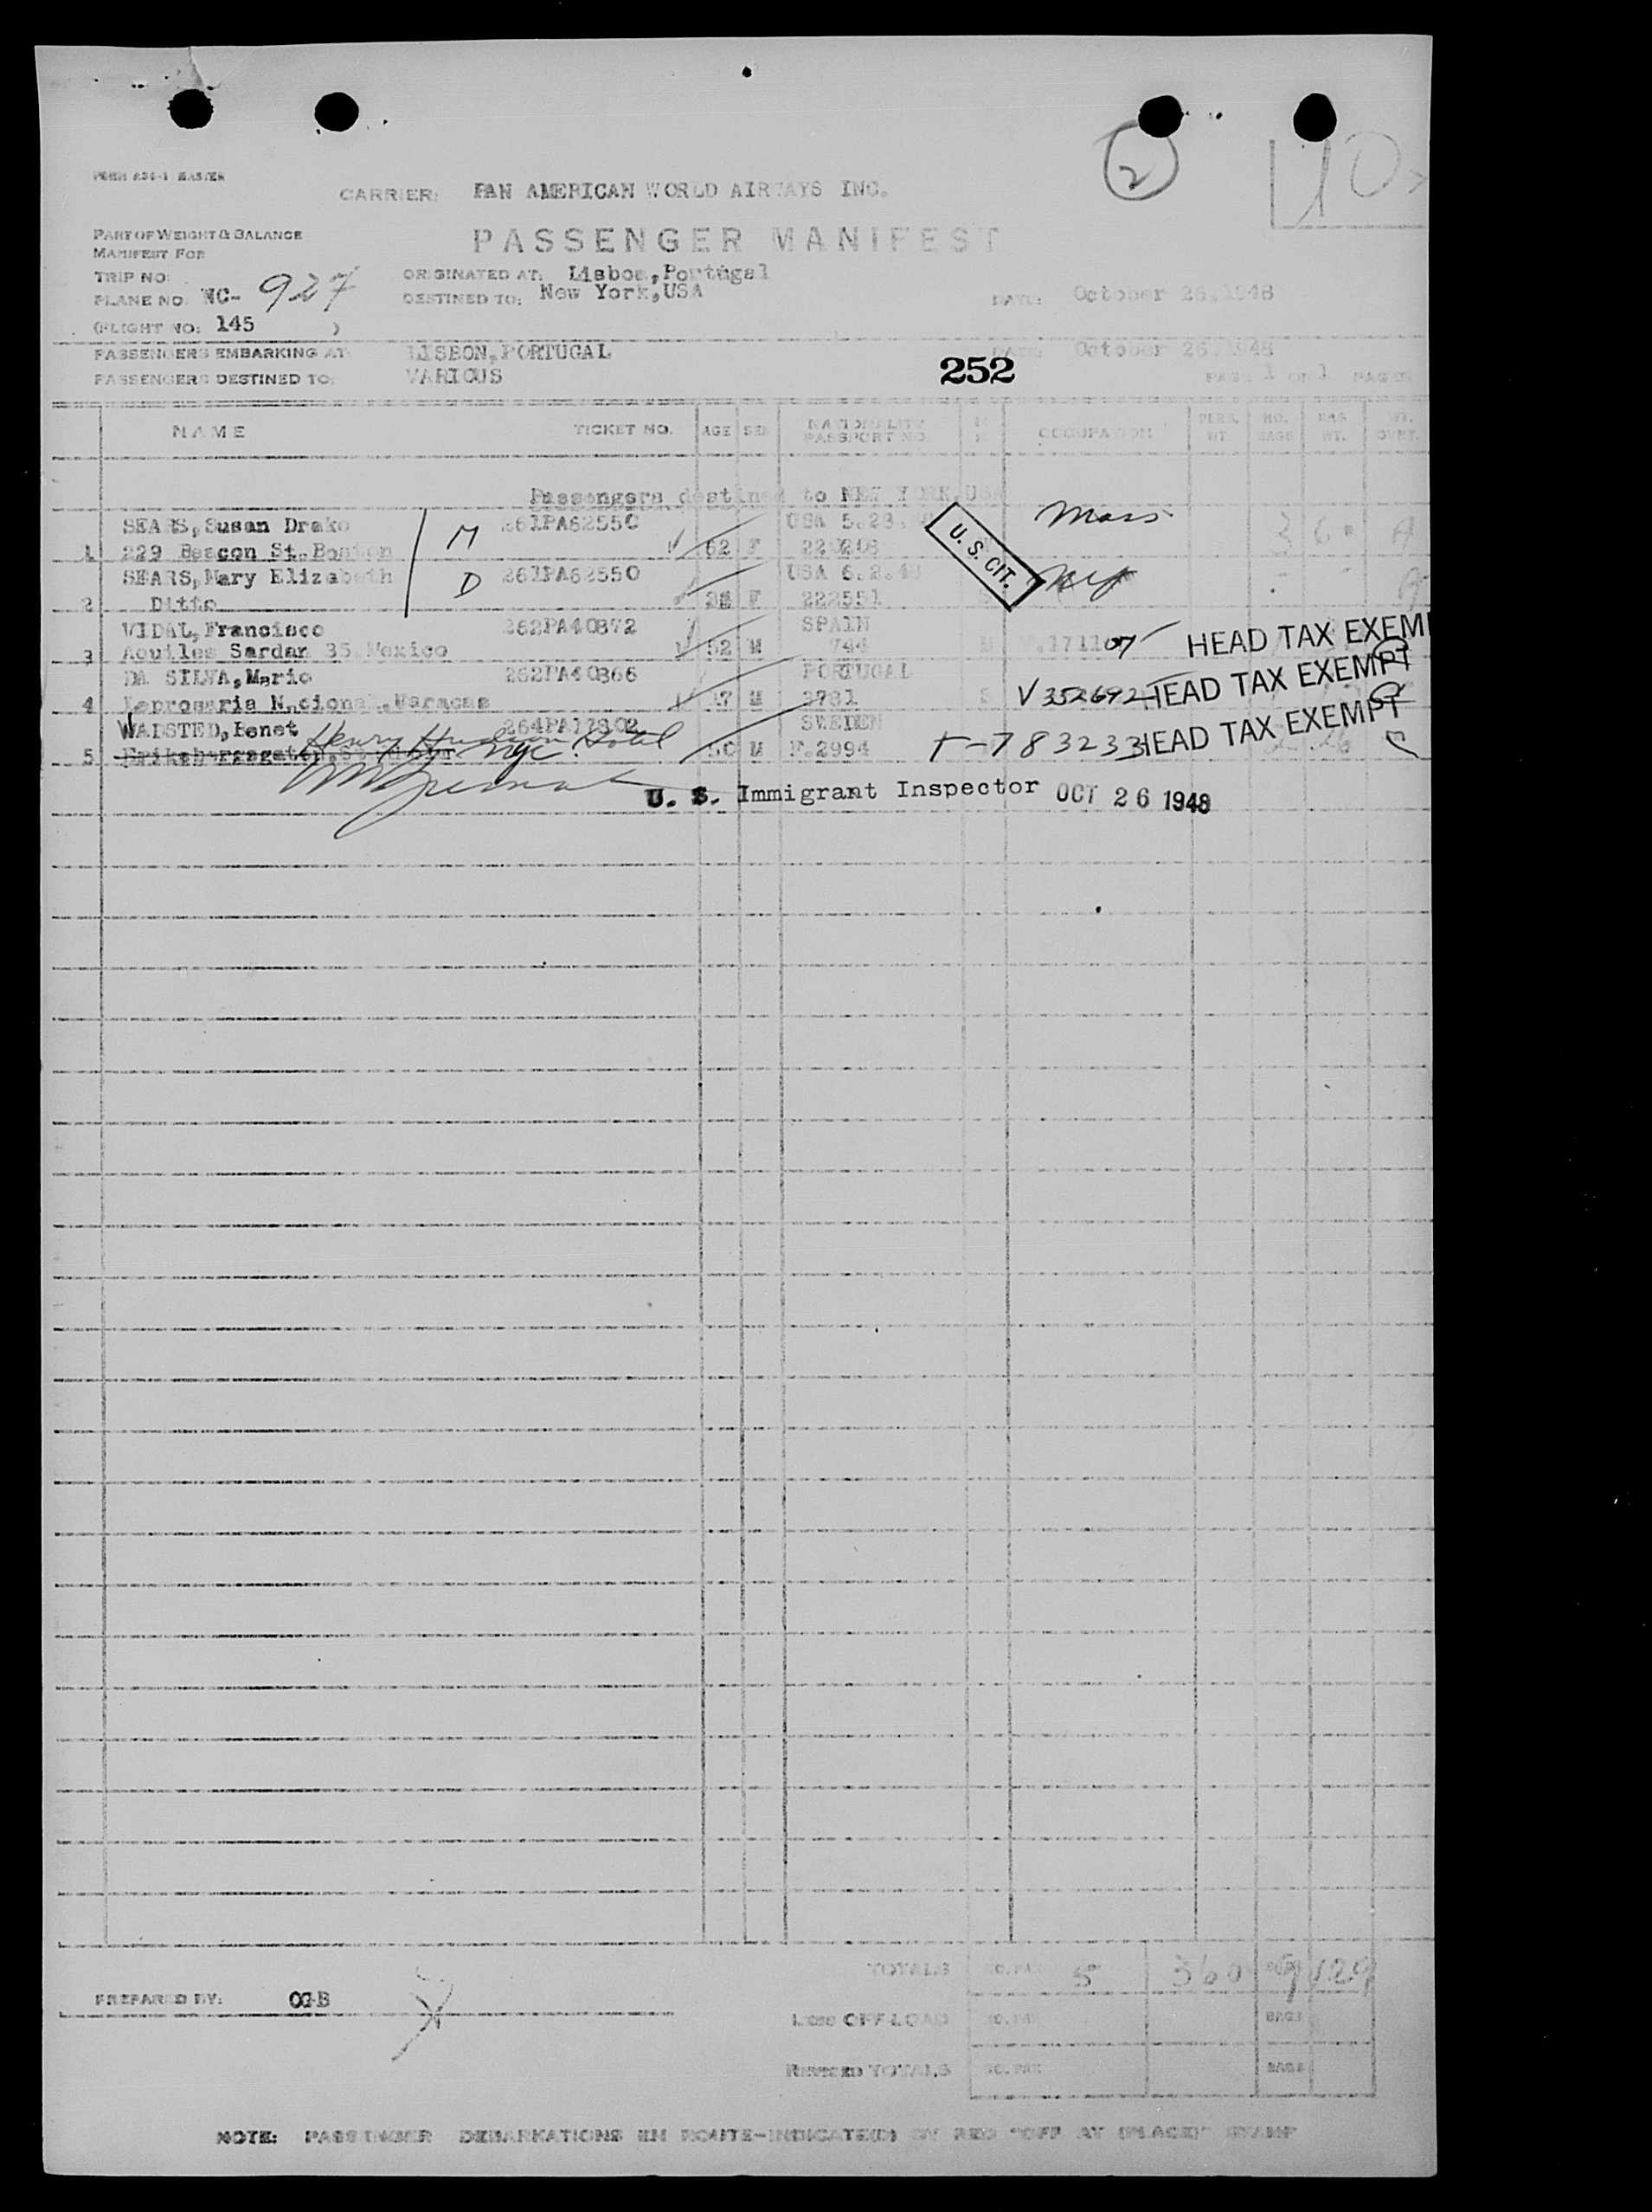 2
10
FORM A34-1 MASTER
CARRIER: PAN AMERICAN WORLD AIRWAYS INC.
PART OF WEIGHT & BALANCE
MANIFEST FOR
PASSENGER MANIFEST
TRIP NO:
ORIGINATED AT: Lisboa, Portugal
PLANE NO NC- 927
DESTINED TO: New York, USA
DATE: October 26, 1948
(FLIGHT NO: 145 )
PASSENGERS EMBARKING AT: LISBON, PORTUGAL
DATE: October 26, 1948
PASSENGERS DESTINED TO: VARIOUS
252
PAGE 1 OF 1 PAGES
NAME TICKET NO. AGE SEX NATIONALITY PASSPORT NO. OCCUPATION PERS. WT. NO. BAGS BAG WT. WT. OVWT.
Passengers destined to NEW YORK, USA
SEARS, Susan Drake M 261PA62550 USA 5.28. Mass
1 229 Beacon St. Boston 62 F 220208
U. S. CIT.
SEARS, Mary Elizabeth D 261PA62550 USA 6.2.48
2 Ditto F 222551
VIDAL, Francisco 262PA40872 SPAIN
3 Aquiles Serdan 35 Mexico 52 M 744 M 171107 HEAD TAX EXEM
DA SILVA, Mario 262PA40866 PORTUGAL
4 Leprosaria Nacional, Maracas M 3781 S V 352692 HEAD TAX EXEMPT
WADSTED, Benet 264PA17802 SWEDEN
Henry Hudson Hotel
5 NYC M F.2994 T-783233 HEAD TAX EXEMPT
U. S. Immigrant Inspector OCT 26 1948
TOTALS NO. PAX 5 360 BAGS 9 129
PREPARED BY: OGB
LESS OFF-LOAD NO. PAX BAGS
REVISED TOTALS NO. PAX BAGS
NOTE: PASSENGER DEBARKATIONS EN ROUTE-INDICATE(D) BY RED "OFF AT (PLACE)" STAMP